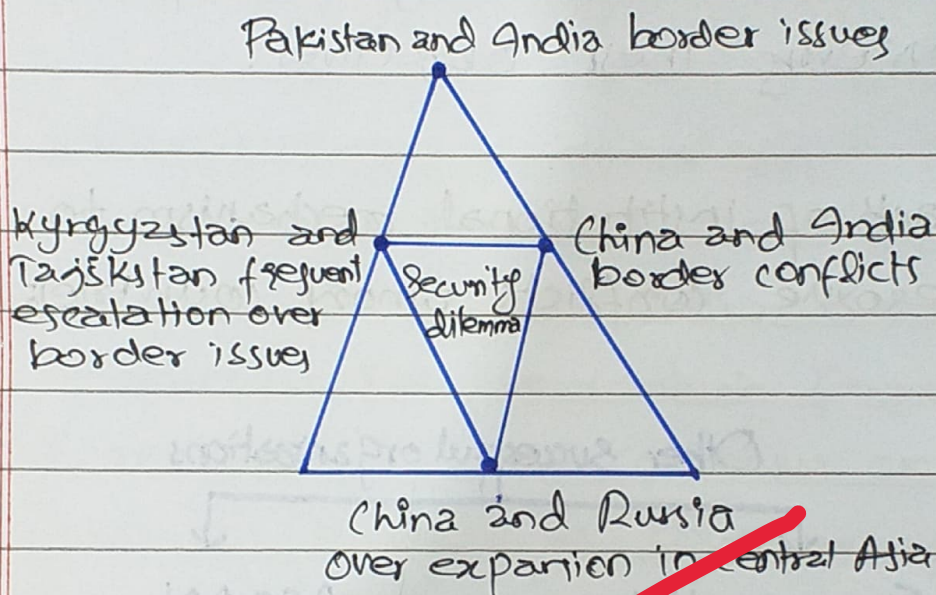 Pakistan and India border issues
Kyrgyzstan and
Tajikistan frequent
escalation over
border issues
China and India
border conflicts
Security
dilemma
China and Russia
over expansion in central Asia